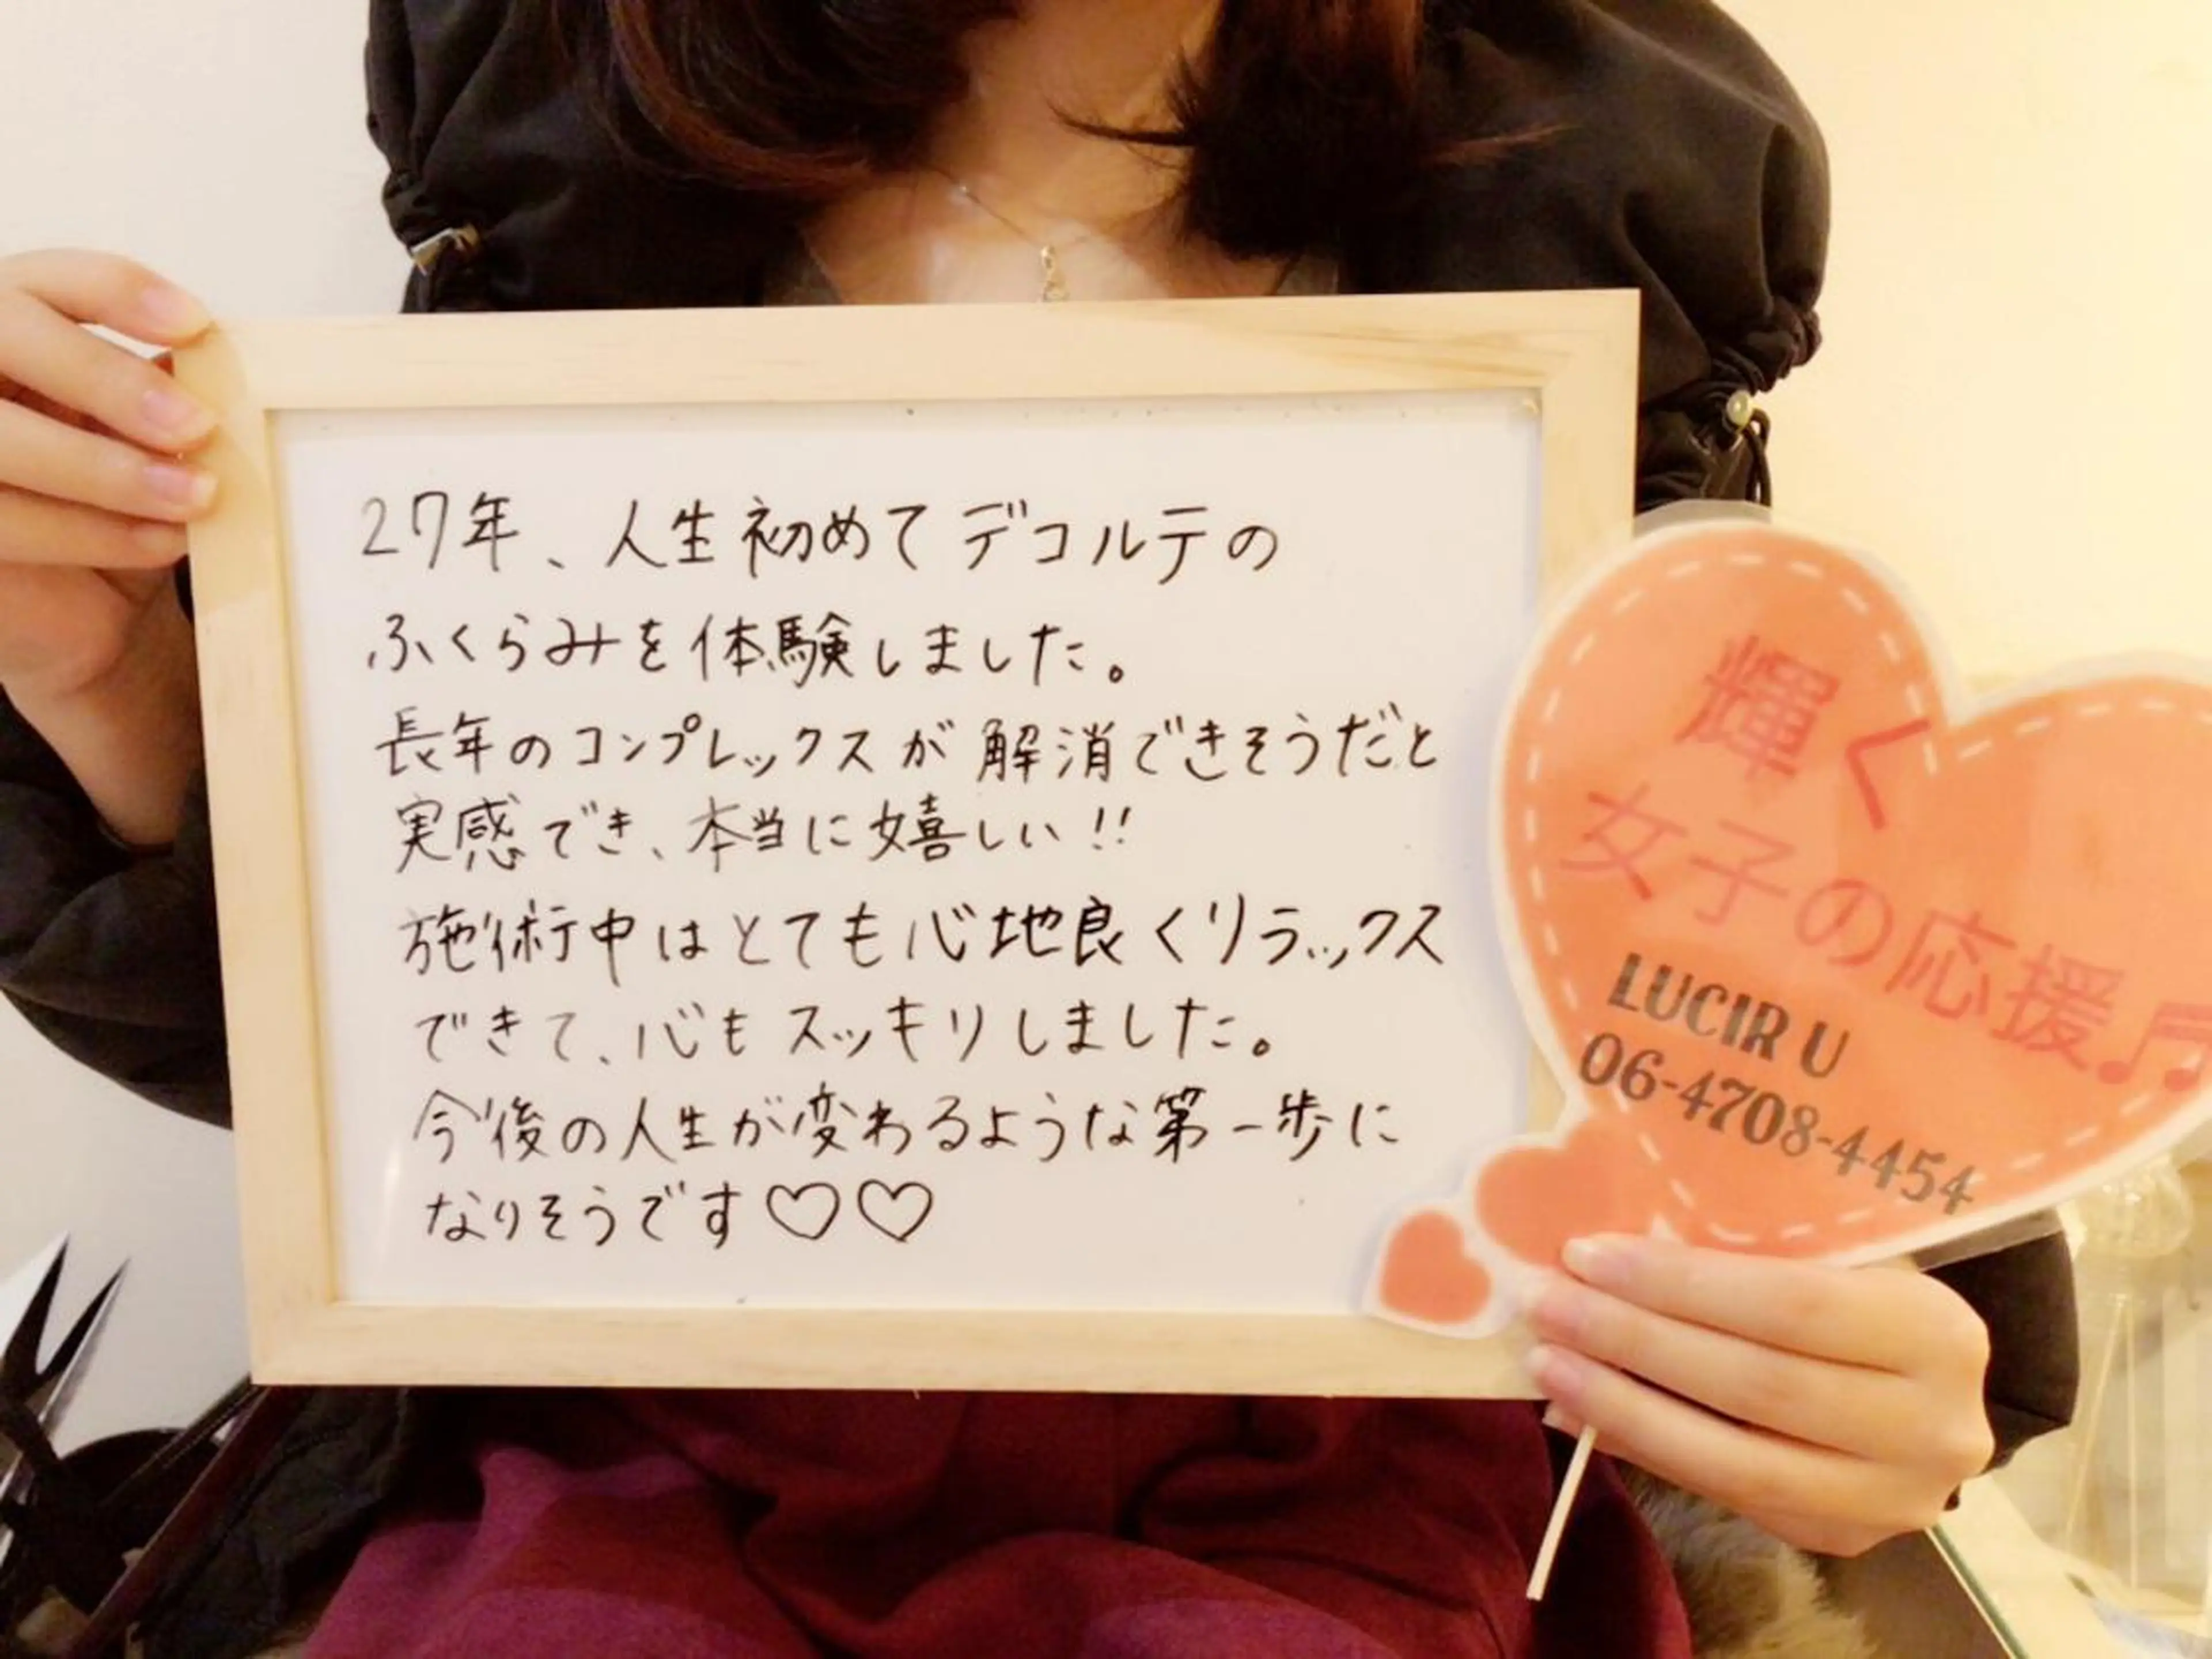 27年、人生初めてデコルテの
ふくらみを体験しました。
長年のコンプレックスが解消できそうだと
実感でき、本当に嬉しい!!
施術中はとても心地良くリラックス
できて、心もスッキリしました。
今後の人生が変わるような第一歩に
なりそうです♡♡
輝く
女子の応援♬
LUCIR U
06-4708-4454